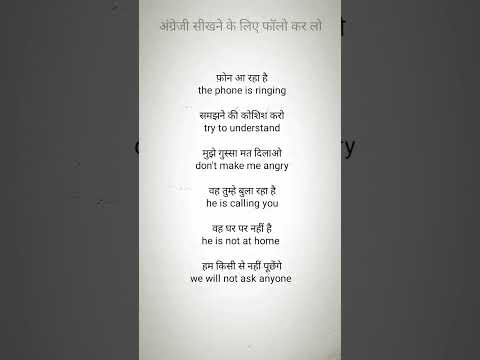 अंग्रेजी सीखने के लिए फॉलो कर लो
फ़ोन आ रहा है
the phone is ringing
समझने की कोशिश करो
try to understand
मुझे गुस्सा मत दिलाओ
don't make me angry
वह तुम्हे बुला रहा है
he is calling you
वह घर पर नहीं है
he is not at home
हम किसी से नहीं पूछेंगे
we will not ask anyone